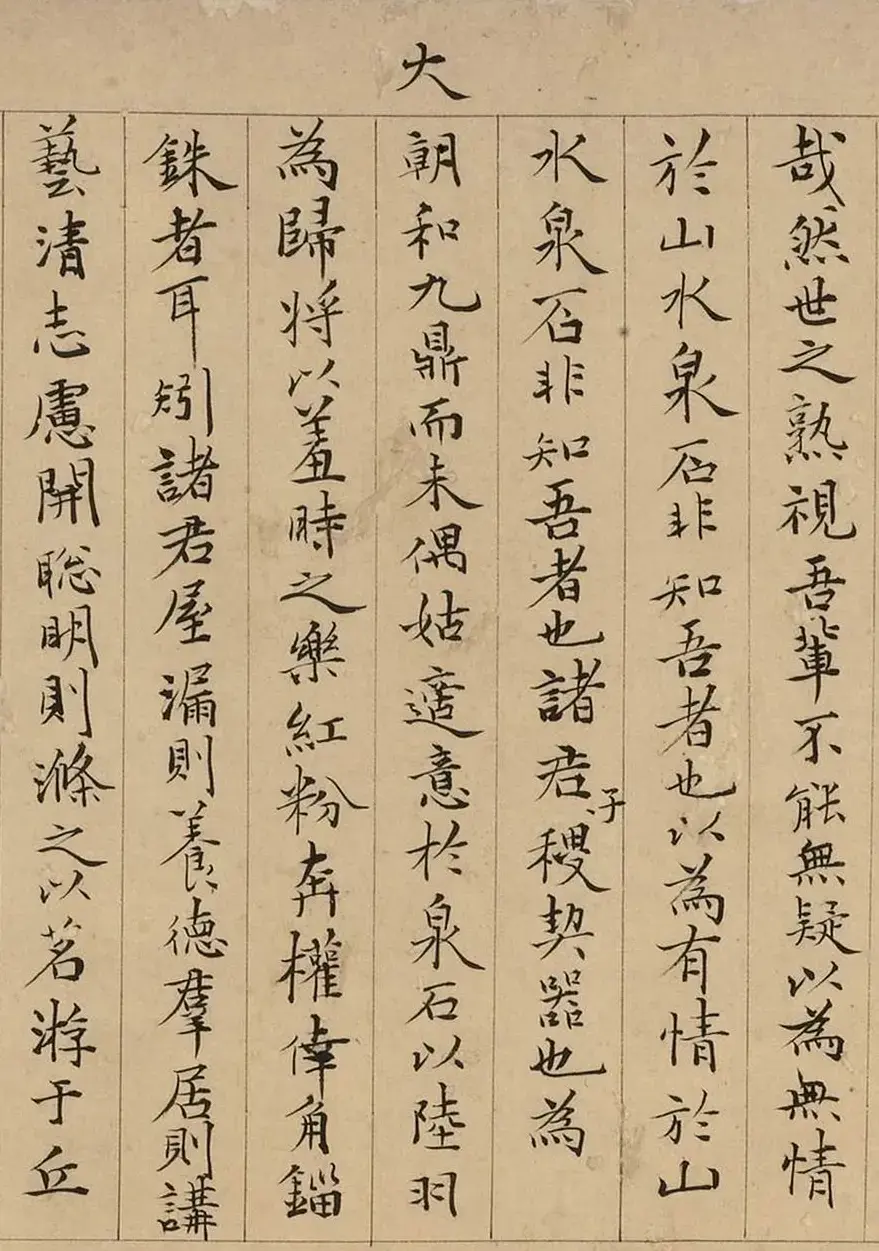 哉然世之熟視吾輩不能無疑以為無情
於山水泉石非知吾者也以為有情於山
水泉石非知吾者也諸君子稷契器也為
大
朝和九鼎而未偶姑適意於泉石以陸羽
為歸將以羞時之樂紅粉奔權倖角錙
銖者耳矧諸君屋漏則養德羣居則講
藝清志慮開聰明則滌之以茗游于丘